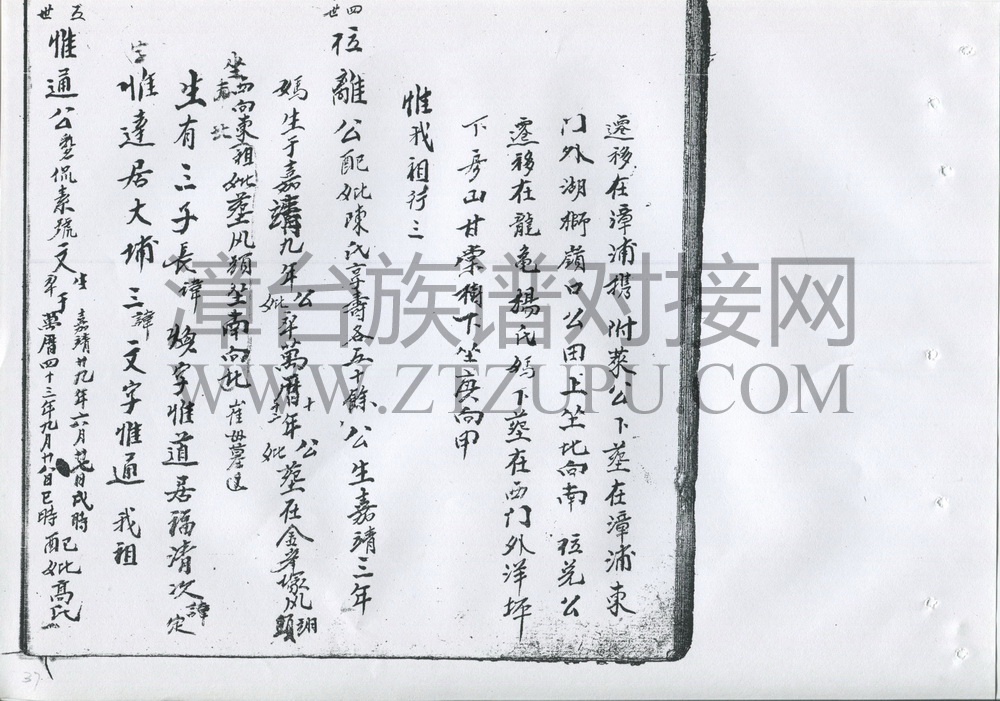 遷移在漳浦攜 附萊公下塟在漳浦東
门外湖獅嶺口公田上坐北向南 拉兑公
遷移在龍龟 楊氏媽下塟在西门外洋坪
下房山甘棠樹下坐庚向甲
惟我祖行三
四世
拉離公配妣陳氏享壽各五十餘 公生嘉靖三年
媽生于嘉靖九年 公妣卒萬曆十十二年 公妣塟在金 塚风頭
坐西向東祖妣塟风頭坐南向北 崔母墓邊
生有三子長諱 字惟道居福清次諱定
字惟達居大埔 三諱文字惟通 我祖
五世
惟通公 侃素號文
生 嘉靖廿九年六月 日戌時
卒于萬曆四十三年九月廿八日巳時 配妣高氏
漳台族谱对接网
WWW.ZTZUPU.COM
37